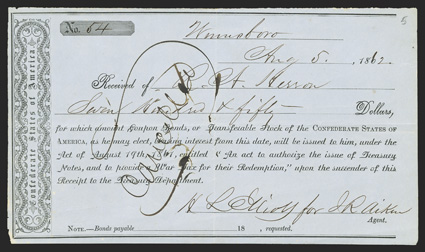 5
No. 64
Confederate States of America.
Winnsboro
Aug 5. 1862.
Received of P. H. Herron
Seven Hundred & fifty Dollars,
for which amount Coupon Bonds, or Transferable Stock of the CONFEDERATE STATES OF
AMERICA, as he may elect, bearing interest from this date, will be issued to him, under the
Act of August 19th, 1861, entitled "An act to authorize the issue of Treasury
Notes, and to provide a War Tax for their Redemption," upon the surrender of this
Receipt to the Treasury Department.
H L Elliott for J R Aiken
Agent.
NOTE.—Bonds payable 18 , requested.